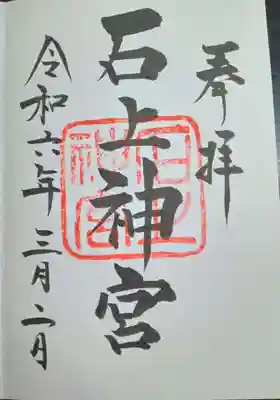 奉拝
石上神宮
令和六年三月二日